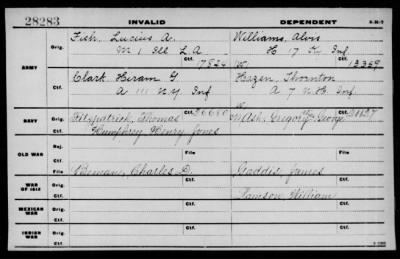 28283 INVALID DEPENDENT
ARMY
Orig. Fish, Lucius A. Williams, Alvis
M 1 Ill L A H 17 Ky Inf.
17824 13359
Ctf. Clark Hiram G. Hazen, Thornton
A 111 N.Y Inf A 7 N.H Inf.
NAVY
Orig. Fitzpatrick, Thomas Walsh, Gregory George
Ctf. Humphrey Henry Jones
OLD WAR
Rej.
Ctf. Ctf.
Ctf. Beman, Charles D. Gaddis, James
WAR OF 1812
Orig. Lamson, William
Ctf.
MEXICAN WAR
Orig. Ctf.
Ctf.
INDIAN WAR
Orig. Ctf.
Ctf.